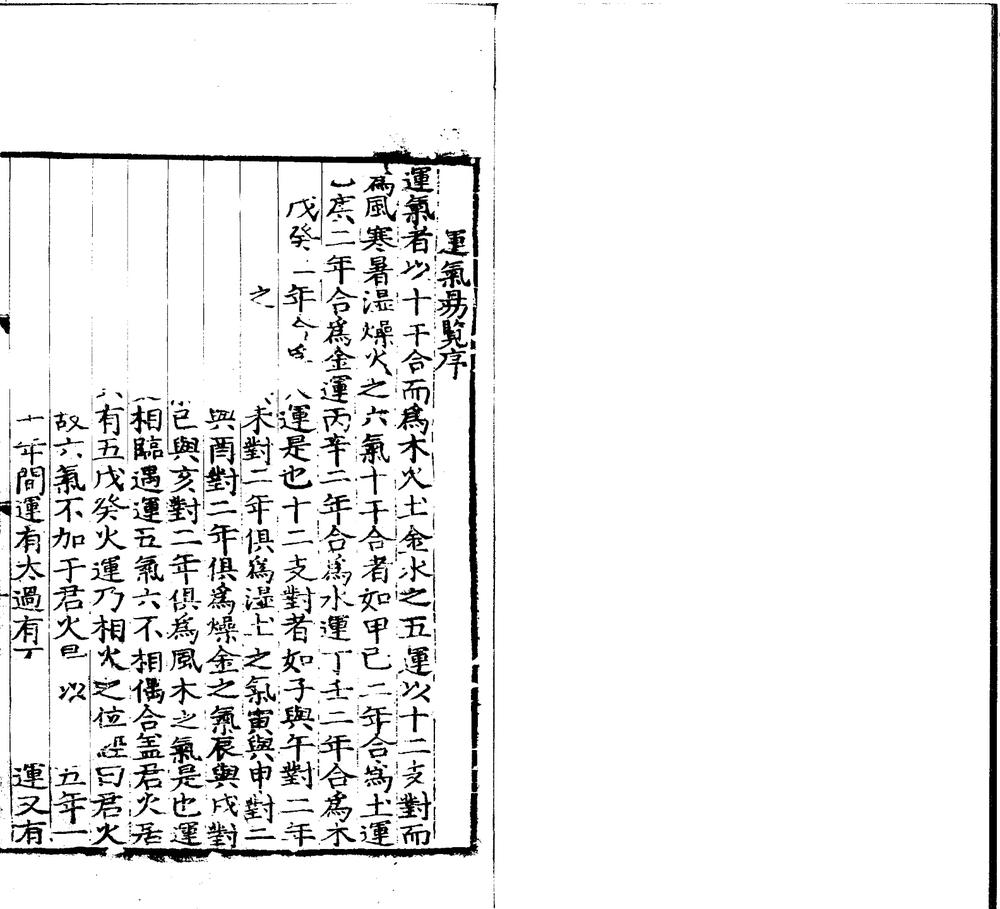 運氣易覧序
運氣者以十干合而為木火土金水之五運以十二支對而
為風寒暑湿燥火之六氣十干合者如甲己二年合為土運
庚二年合爲金運丙辛二年合爲水運丁壬二年合爲木
戊癸 年 運是也十二支對者如子與午對二年
之 未對二年俱爲湿土之氣寅與申對二
與酉對二年俱爲燥金之氣辰與戌對
巳與亥對二年俱爲風木之氣是也運
相臨遇運五氣六不相偶合盖君火居
有五戊癸火運乃相火之位經曰君火
故六氣不加于君火 以 五年一
年間運有太過有 運又有